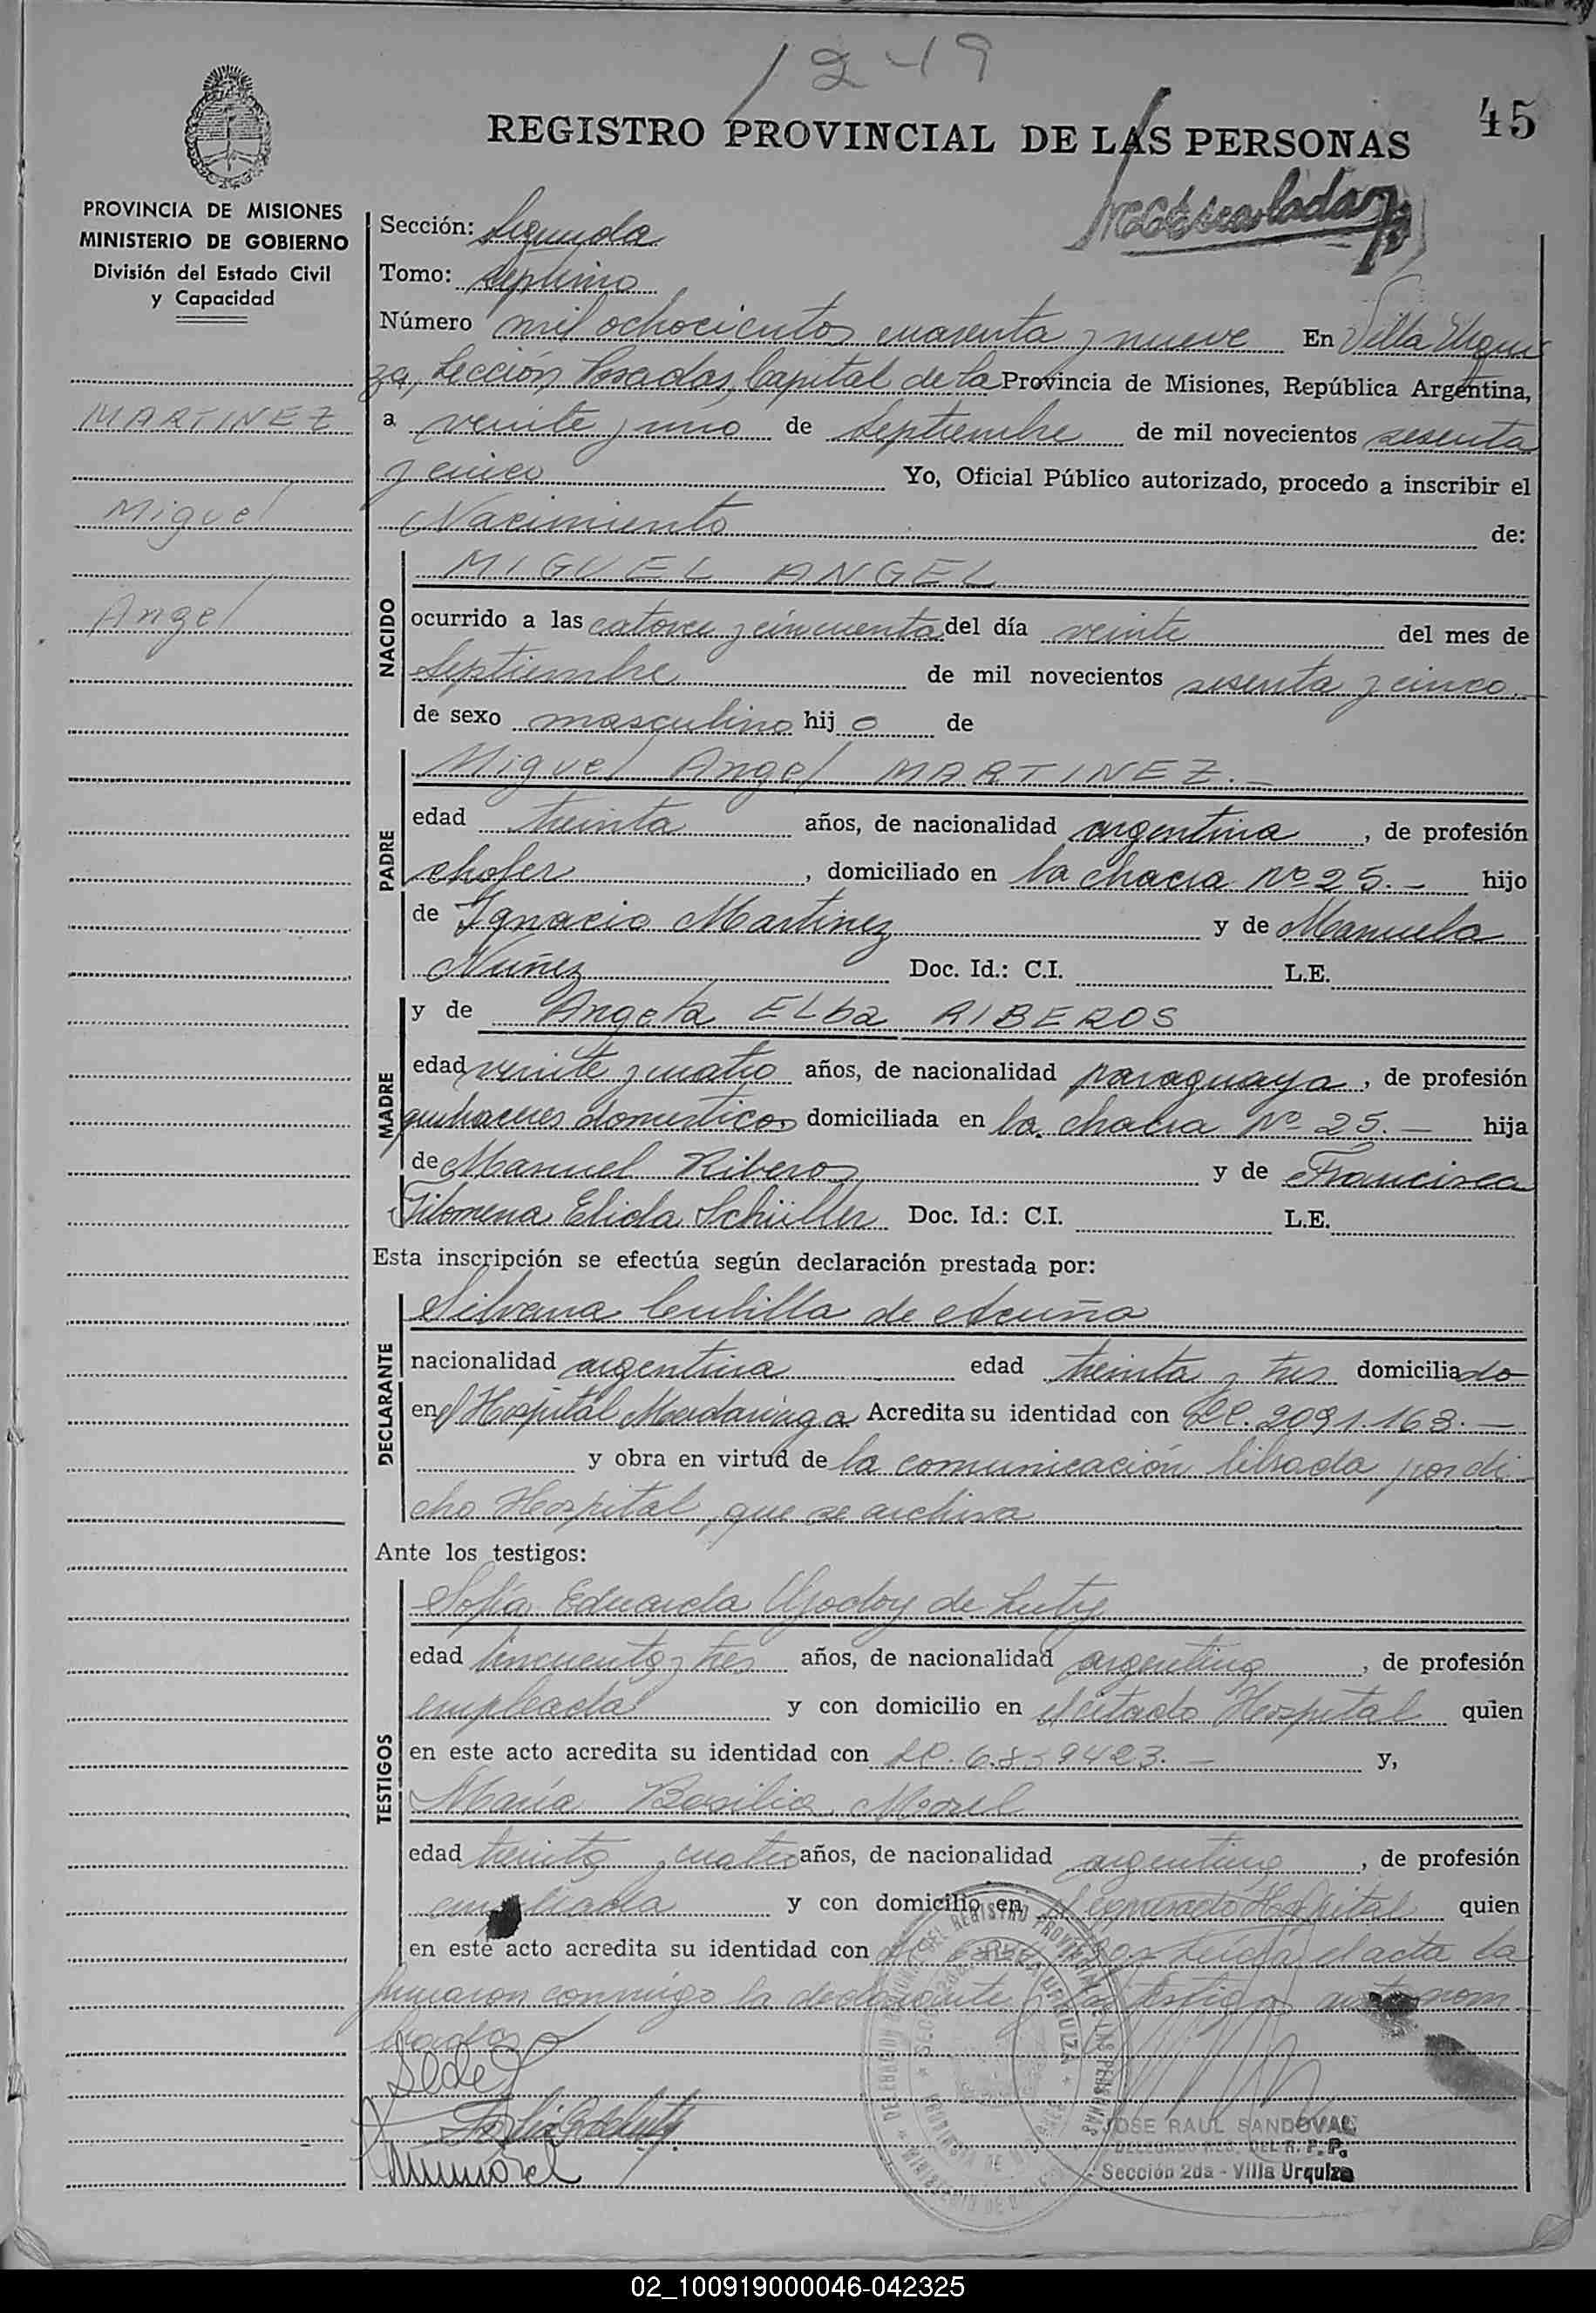 1249
REGISTRO PROVINCIAL DE LAS PERSONAS
45
PROVINCIA DE MISIONES
MINISTERIO DE GOBIERNO
División del Estado Civil
y Capacidad
MARTINEZ
Miguel
Angel
Sección: Segunda
Tomo: Septimo
Número mil ochocientos cuarenta y nueve En Villa Urqui
za, Sección Posadas, Capital de la Provincia de Misiones, República Argentina,
a veinte y uno de Septiembre de mil novecientos sesenta
y cinco Yo, Oficial Público autorizado, procedo a inscribir el
Nacimiento de:
NACIDO
MIGUEL ANGEL
ocurrido a las catorce y cincuenta del día veinte del mes de
Septiembre de mil novecientos sesenta y cinco.
de sexo masculino hijo de
PADRE
Miguel Angel MARTINEZ.-
edad treinta años, de nacionalidad argentina, de profesión
chofer, domiciliado en la chacra Nº 25.- hijo
de Ignacio Martinez y de Manuela
Nuñez Doc. Id.: C.I. L.E.
MADRE
y de Angela Elba RIBEROS
edad veinte y cuatro años, de nacionalidad paraguaya, de profesión
quehaceres domesticos domiciliada en la chacra Nº 25.- hija
de Manuel Riberos y de Francisca
Filomena Elida Schüller Doc. Id.: C.I. L.E.
Esta inscripción se efectúa según declaración prestada por:
DECLARANTE
Silvana Cubilla de Acuña
nacionalidad argentina edad treinta y tres domiciliado
en el Hospital Madariaga Acredita su identidad con LC. 2091.163.-
y obra en virtud de la comunicación librada por di
cho Hospital, que se archiva
Ante los testigos:
TESTIGOS
Sofía Eduarda Godoy de
edad cincuenta y tres años, de nacionalidad argentina, de profesión
empleada y con domicilio en el citado Hospital quien
en este acto acredita su identidad con LC. 6.859423.- y,
María Basilia Morel
edad treinta y cuatro años, de nacionalidad argentina, de profesión
empleada y con domicilio en el Hospital quien
en este acto acredita su identidad con Leída el acta la
firmaron conmigo la declarante y los testigos nom
brados
JOSE RAUL SANDOVAL
DEL R. P. P.
Sección 2da - Villa Urquiza
02_100919000046-042325